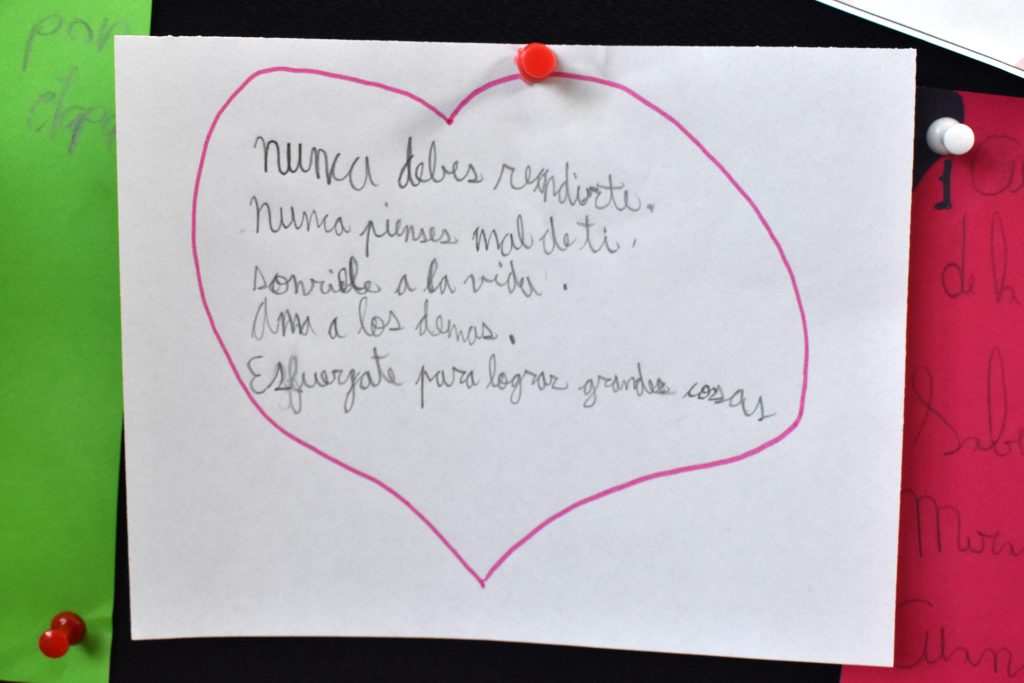 por
nunca debes rendirte.
Nunca pienses mal de ti.
sonriele a la vida.
Ama a los demas.
Esfuerzate para lograr grandes cosas
1
de la